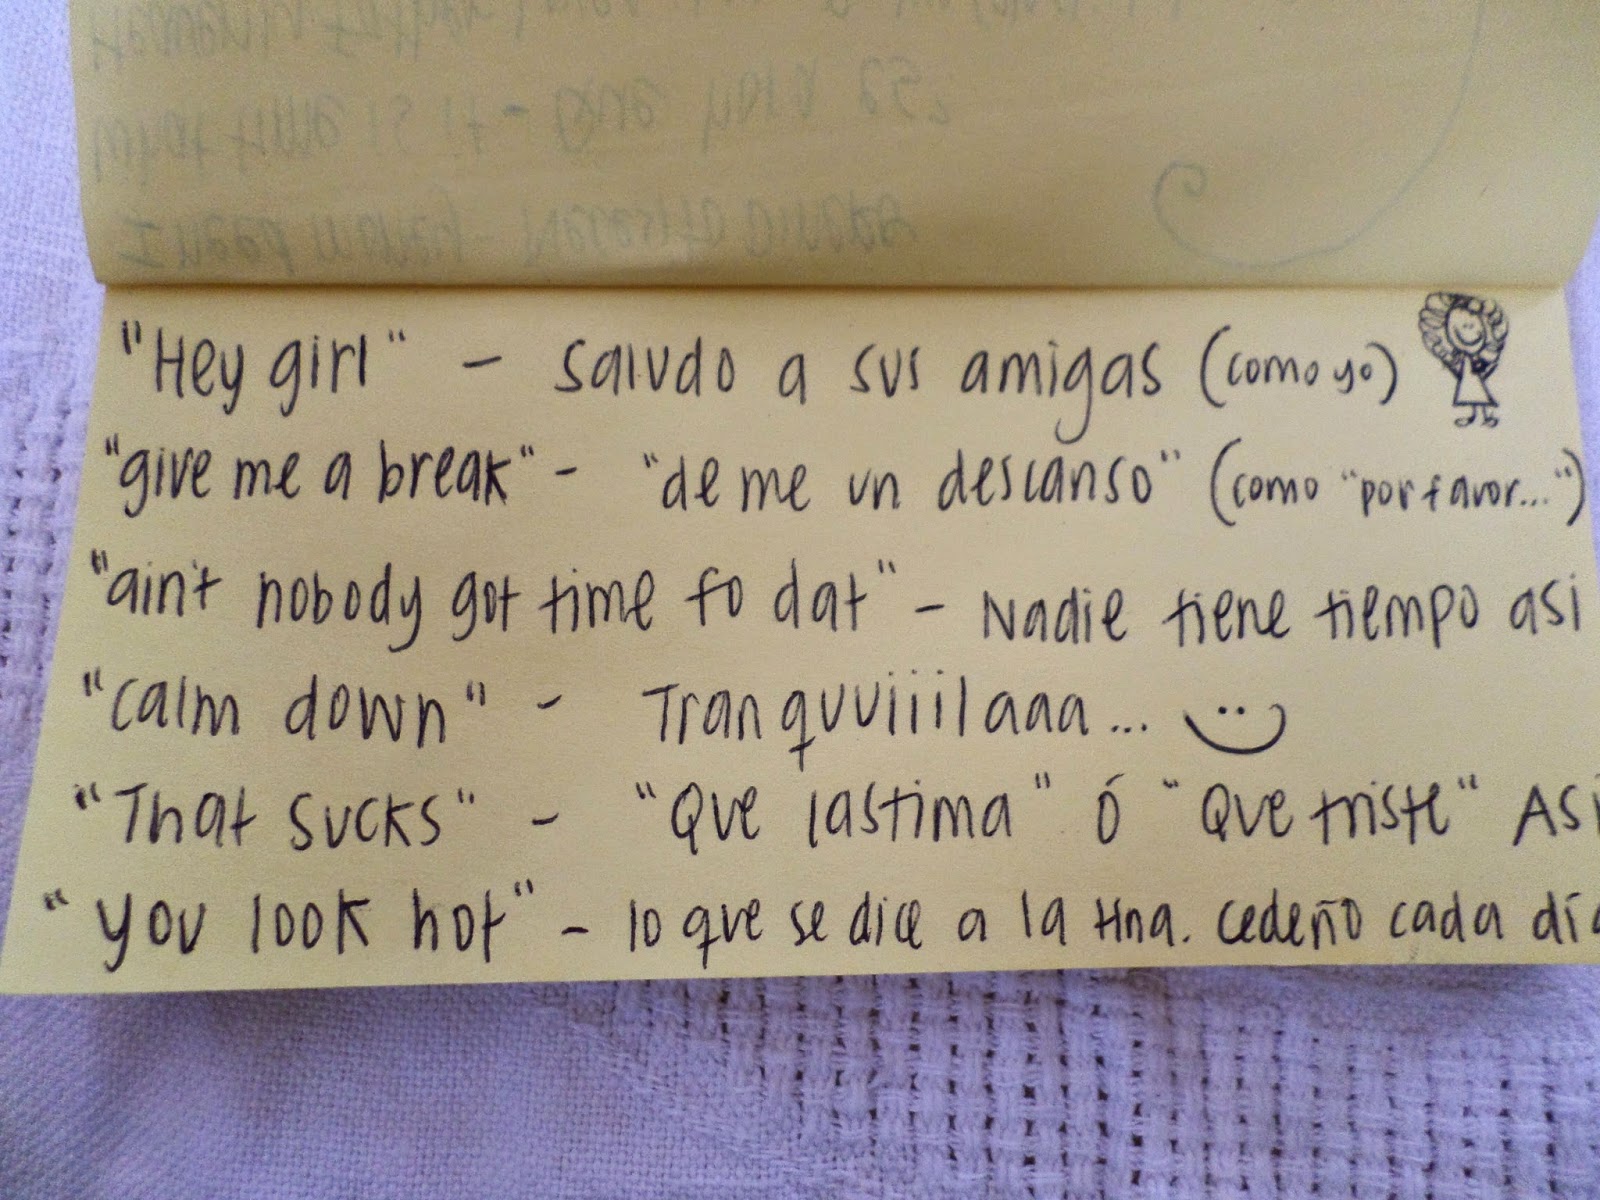 "Hey girl" - saludo a sus amigas (como yo)
"give me a break" - "de me un descanso" (como "por favor...")
"ain't nobody got time fo dat" - Nadie tiene tiempo asi
"calm down" - Tranquuiiilaaa...
"That sucks" - "Que lastima" ó "Que triste" Asi
"you look hot" - lo que se dice a la Hna. Cedeño cada día